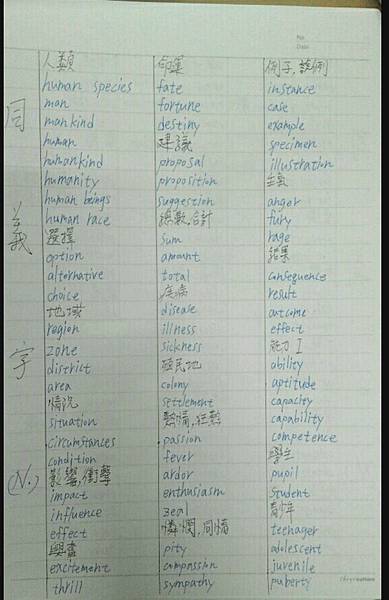 No.
Date
同義字(N.)
人類
human species
man
mankind
human
humankind
humanity
human beings
human race
選擇
option
alternative
choice
地域
region
zone
district
area
情況
situation
circumstances
condition
影響,衝擊
impact
influence
effect
興奮
excitement
thrill
命運
fate
fortune
destiny
建議
proposal
proposition
suggestion
總數,合計
sum
amount
total
疾病
disease
illness
sickness
殖民地
colony
settlement
熱情,狂熱
passion
fever
ardor
enthusiasm
zeal
憐憫,同情
pity
compassion
sympathy
例子,
instance
case
example
specimen
illustration
生氣
anger
fury
rage
結果
consequence
result
outcome
effect
能力 I
ability
aptitude
capacity
capability
competence
學生
pupil
student
青少年
teenager
adolescent
juvenile
puberty